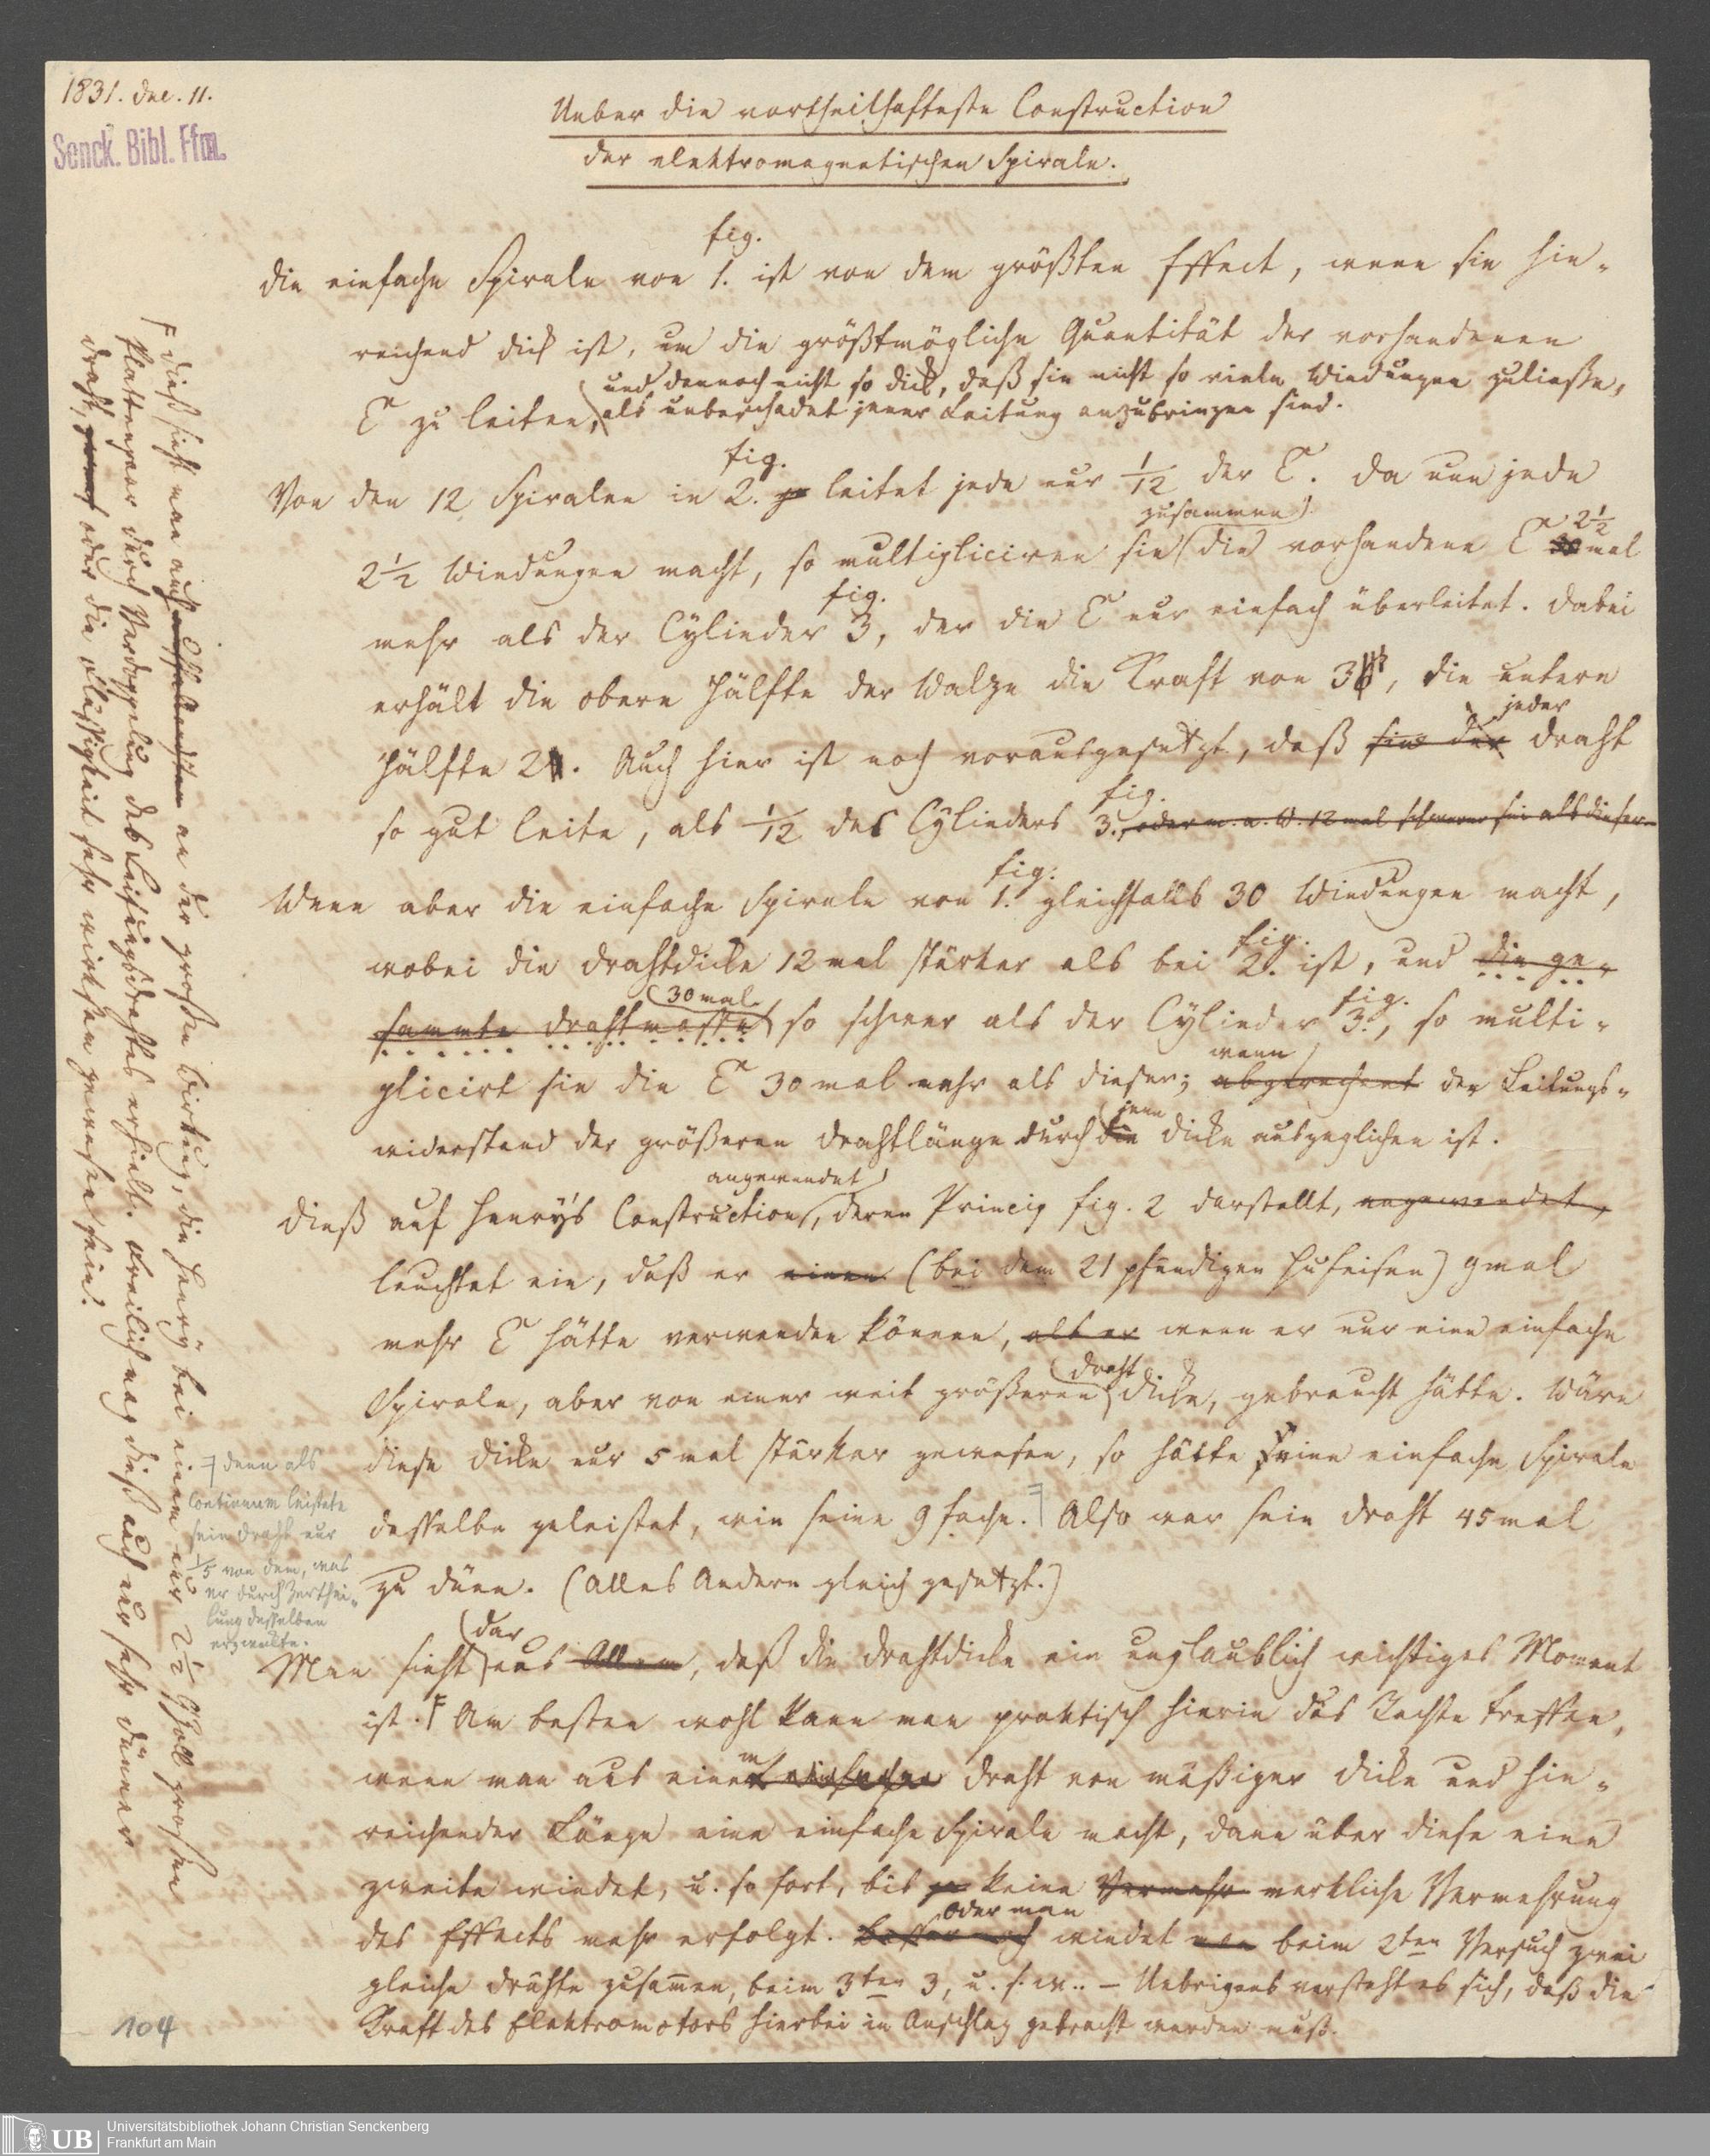 1831. Dec. 11.
Senck. Bibl. Ffm.
Ueber die vortheilhafteste Construction
der elektromagnetischen Spirale.
fig.
Die einfache Spirale von 1. ist von dem größten Effect, wenn sie hin-
reichend dick ist, um die größtmögliche Quantität der vorhandenen
und dennoch nicht so dick, daß sie nicht so viele Windungen zuließe,
E zu leiten, als unbeschadet jener Leitung anzubringen sind.
fig.
Von den 12 Spiralen in 2. je leitet jede nur 1/12 der E. Da nun jede
zusammen 2 1/2
2 1/2 Windungen macht, so multipliciren sie die vorhandene E 30 mal
fig.
mehr als der Cylinder 3, der die E nur einfach überleitet. Dabei
erhält die obere Hälfte der Walze die Kraft von 3, die untere
jeder
Hälfte 2. Auch hier ist noch vorausgesetzt, daß sie der Draht
fig.
so gut leite, als 1/12 des Cylinders 3., oder m. a. W. 12 mal schwerer sei als dieser.
fig.
Wenn aber die einfache Spirale von 1. gleichfalls 30 Windungen macht,
fig.
wobei die Drahtdicke 12 mal stärker als bei 2. ist, und die ge-
30 mal fig.
sammte Drahtmasse so schwer als der Cylinder 3., so multi-
wenn
plicirt sie die E 30 mal mehr als dieser; abgerechnet der Leitungs-
jene
widerstand der größeren Drahtlänge durch die Dicke ausgeglichen ist.
angewendet
Dieß auf Henry's Construction, deren Princip fig. 2 darstellt, angewendet,
leuchtet ein, daß er einen (bei dem 21 pfündigen Hufeisen) 9 mal
mehr E hätte verwenden können, als er wenn er nur eine einfache
Draht
Spirale, aber von einer weit größeren Dicke, gebraucht hätte. Wäre
diese Dicke nur 5 mal stärker gewesen, so hätte seine einfache Spirale
dasselbe geleistet, wie seine 9 fache. Also war sein Draht 45 mal
zu dünn. (Alles Andere gleich gesetzt.)
dar
Man sieht aus Allem, daß die Drahtdicke ein unglaublich wichtiges Moment
ist. F Am besten wohl kann man praktisch hierin das Rechte treffen,
m
wenn man aus einer einfachen Draht von mäßiger Dicke und hin-
reichender Länge eine einfache Spirale macht, dann über diese eine
zweite windet, u. so fort, bis je keine Vermehr merkliche Vermehrung
oder man
des Effects mehr erfolgt. Besser noch windet man beim 2ten Versuch zwei
gleiche Drähte zusammen, beim 3ten 3, u. s. w.. – Uebrigens versteht es sich, daß die
Kraft des Elektromotors hierbei in Anschlag gebracht werden muß.
denn als
Continuum leistete
sein Draht nur
1/5 von dem, was
er durch Zerthei-
lung desselben
erzweckte.
F Dieß sieht man auch an der großen Wirkung, die Henry bei einem nur 2 1/2 Zoll großen
Plattenpaar durch Verdoppelung des Leitungsdrahtes erhielt. Freilich mag dieß auch nur sehr dünner
Draht, oder die Flüssigkeit sehr wirksam gewesen sein.
104
UB Universitätsbibliothek Johann Christian Senckenberg
Frankfurt am Main